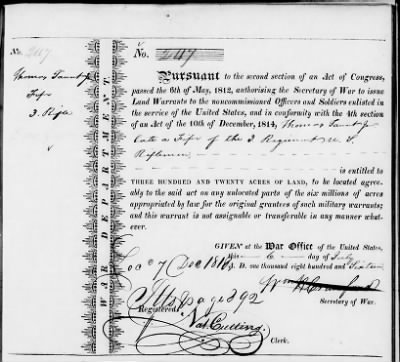 No. 247
Thomas Taunt Jr
Fifer
3. Rifle
WAR DEPARTMENT.
No. 247
PURSUANT to the second section of an Act of Congress,
passed the 6th of May, 1812, authorising the Secretary of War to issue
Land Warrants to the noncommissioned Officers and Soldiers enlisted in
the service of the United States, and in conformity with the 4th section
of an Act of the 10th of December, 1814, Thomas Taunt Jr
late a Fifer of the 3 Regiment U. S.
Riflemen
is entitled to
THREE HUNDRED AND TWENTY ACRES OF LAND, to be located agreeably
to the said act on any unlocated parts of the six millions of acres
appropriated by law for the original grantees of such military warrants;
and this warrant is not assignable or transferable in any manner whatever.
GIVEN at the War Office of the United States,
this 6 day of July
A. D. one thousand eight hundred and Sixteen
Loc 7 Dec 1816
Ills page 392
Wm H Crawford
Secretary of War.
Registered
Nat. Cutting.
Clerk.